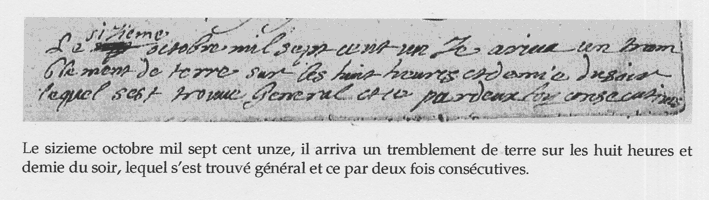 sizieme
Le octobre mil sept cent un Ze ariva un trem
blement de terre sur les huit heures et demie du soir
lequel sest trouue General et ce par deux foy consecutives
Le sizieme octobre mil sept cent unze, il arriva un tremblement de terre sur les huit heures et
demie du soir, lequel s’est trouvé général et ce par deux fois consécutives.